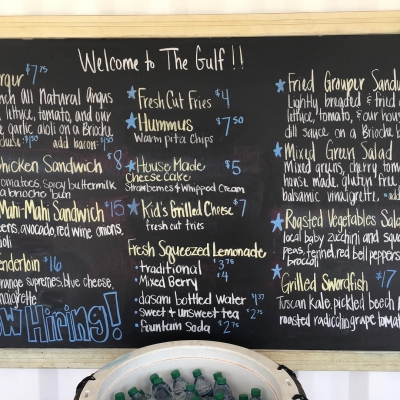 Welcome to The Gulf!!
urger $7.75
nch All Natural Angus
lettuce, tomato, and our
e garlic aioli on a Brioche
add bacon: $1.50
hicken Sandwich $8
omatoes, spicy buttermilk
a brioche bun
Mahi-Mahi Sandwich $15
eens, avocado, red wine onions,
ioli
enderloin $16
orange supremes, blue cheese,
naigrette
ow Hiring!
Fresh Cut Fries $4
Hummus $7.50
Warm pita chips
House Made $5
Cheese Cake
Strawberries & Whipped Cream
Kid's Grilled Cheese $7
fresh cut fries
Fresh Squeezed Lemonade
• traditional 3.75
• Mixed Berry $4
• dasani bottled water $1.37
• Sweet & unsweet tea $2.75
• Fountain Soda $2.75
Fried Grouper Sandw
Lightly breaded & fried
lettuce, tomato, & our hous
dill sauce on a Brioche b
Mixed Green Salad
Mixed greens, cherry tom
house made, gluten free,
balsamic vinaigrette. • ad
Roasted Vegetables Sala
local baby zucchini and squa
peas, fennel, red bell peppers
broccoli
Grilled Swordfish $17
Tuscan kale, pickled beech
roasted radicchio, grape tomat